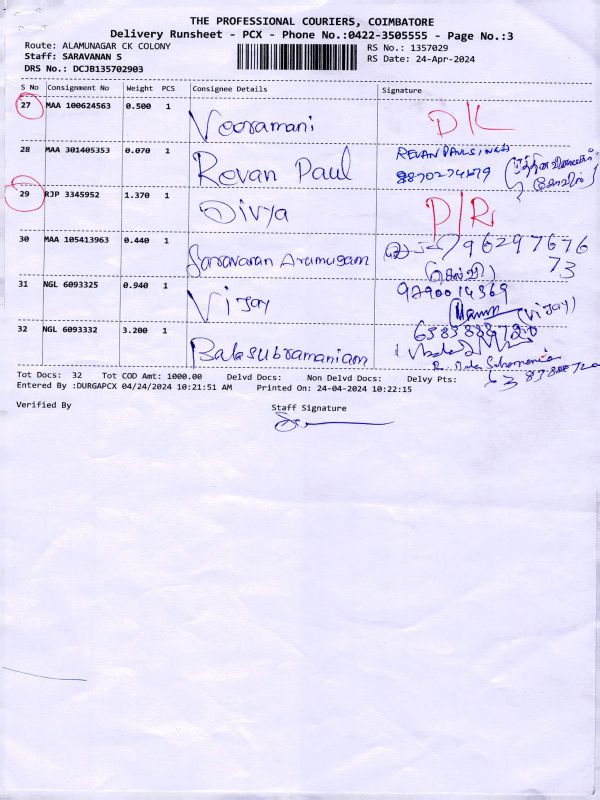 THE PROFESSIONAL COURIERS, COIMBATORE
Delivery Runsheet - PCX - Phone No.:0422-3505555 - Page No.:3
Route: ALAMUNAGAR CK COLONY RS No.: 1357029
Staff: SARAVANAN S RS Date: 24-Apr-2024
DRS No.: DCJB135702903
S No Consignment No Weight PCS Consignee Details Signature
27 MAA 100624563 0.500 1 Veeramani D/L
28 MAA 301405353 0.070 1 Revan Paul REVAN PAUL
29 RJP 3345952 1.370 1 Divya D/R
30 MAA 105413963 0.440 1 Saravanan Arumugam 96297676
73
31 NGL 6093325 0.940 1 Vijay 9790014369
(Vijay)
32 NGL 6093332 3.200 1 Balasubramaniam
Tot Docs: 32 Tot COD Amt: 1000.00 Delvd Docs: Non Delvd Docs: Delvy Pts:
Entered By :DURGAPCX 04/24/2024 10:21:51 AM Printed On: 24-04-2024 10:22:15
Verified By Staff Signature